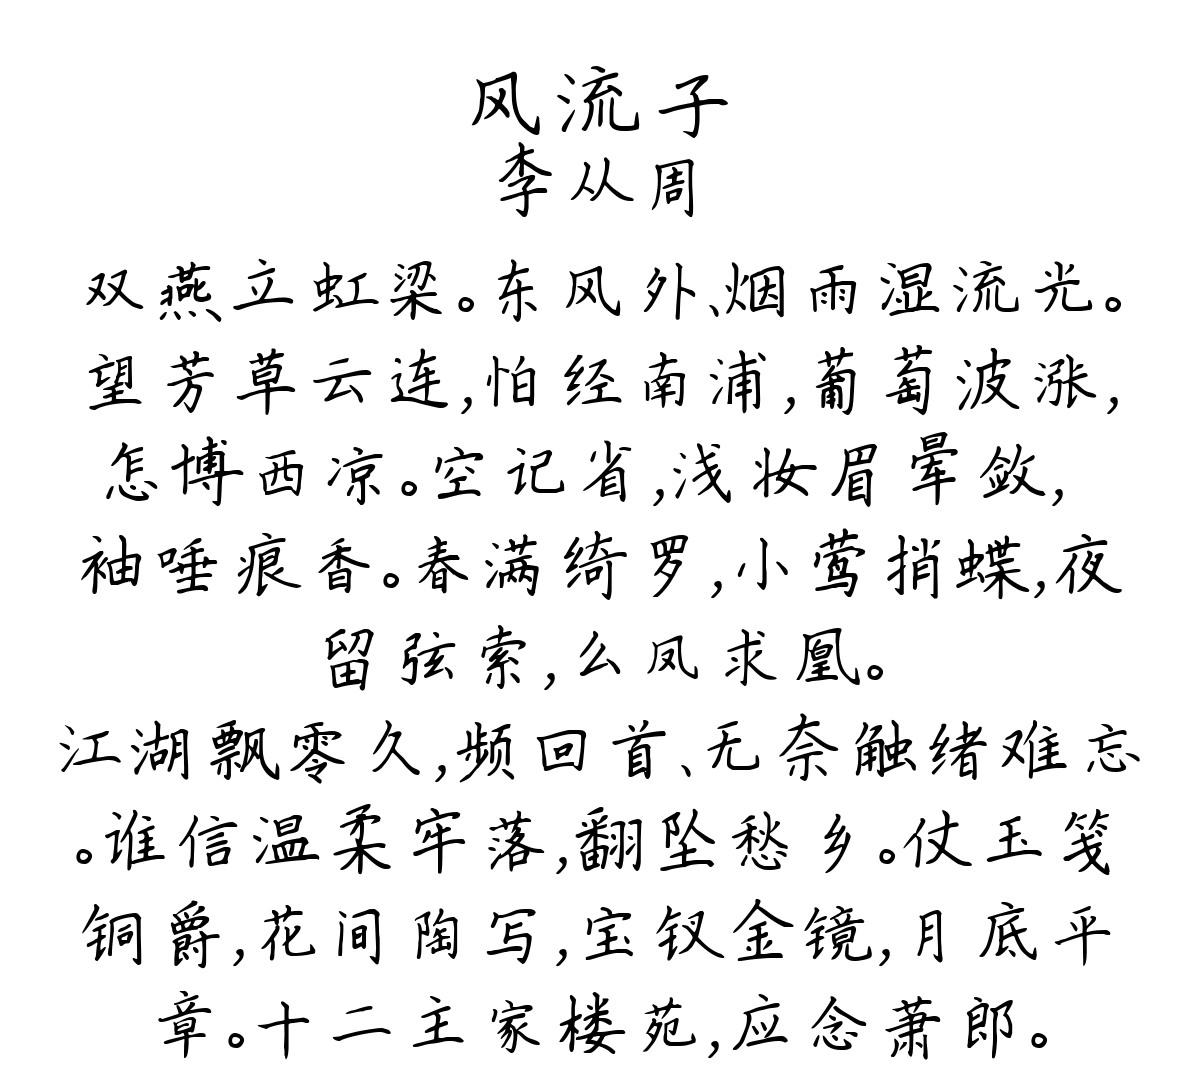 风流子
李从周
双燕立虹梁。东风外、烟雨湿流光。
望芳草云连,怕经南浦,葡萄波涨,
怎博西凉。空记省,浅妆眉晕敛,
袖唾痕香。春满绮罗,小莺捎蝶,夜
留弦索,么凤求凰。
江湖飘零久,频回首、无奈触绪难忘
。谁信温柔牢落,翻坠愁乡。仗玉笺
铜爵,花间陶写,宝钗金镜,月底平
章。十二主家楼苑,应念萧郎。